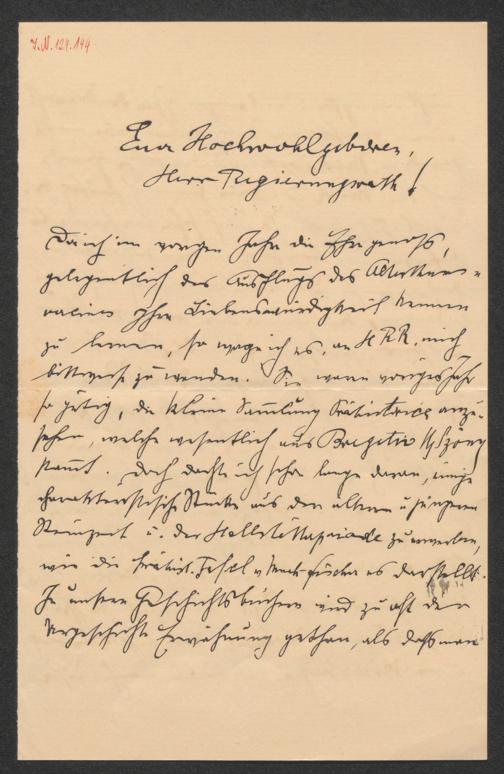 I.N. 129.144
Euer Hochwohlgeboren,
Herr Regierungsrath!
Da ich im vorigen Jahr die Ehre genoß,
gelegentlich des Ausflugs des Alterthums-
vereines Ihre Liebenswürdigkeit kennen
zu lernen, so wage ich es, an H RR. mich
bittweise zu wenden. Sie waren voriges Jahr
so gütig, die kleine Sammlung anzu-
sehen, welche wesentlich aus Bregetio
stammt. Doch dachte ich schon lange daran, einige
charakteristische Stücke aus der älteren u. jüngeren
Steinzeit u. der Hallstattperiode zu erwerben,
wie die Tafel v. es darstellt.
In unseren Geschichtsbüchern wird zu oft der
Vorgeschichte Erwähnung gethan, als dass man